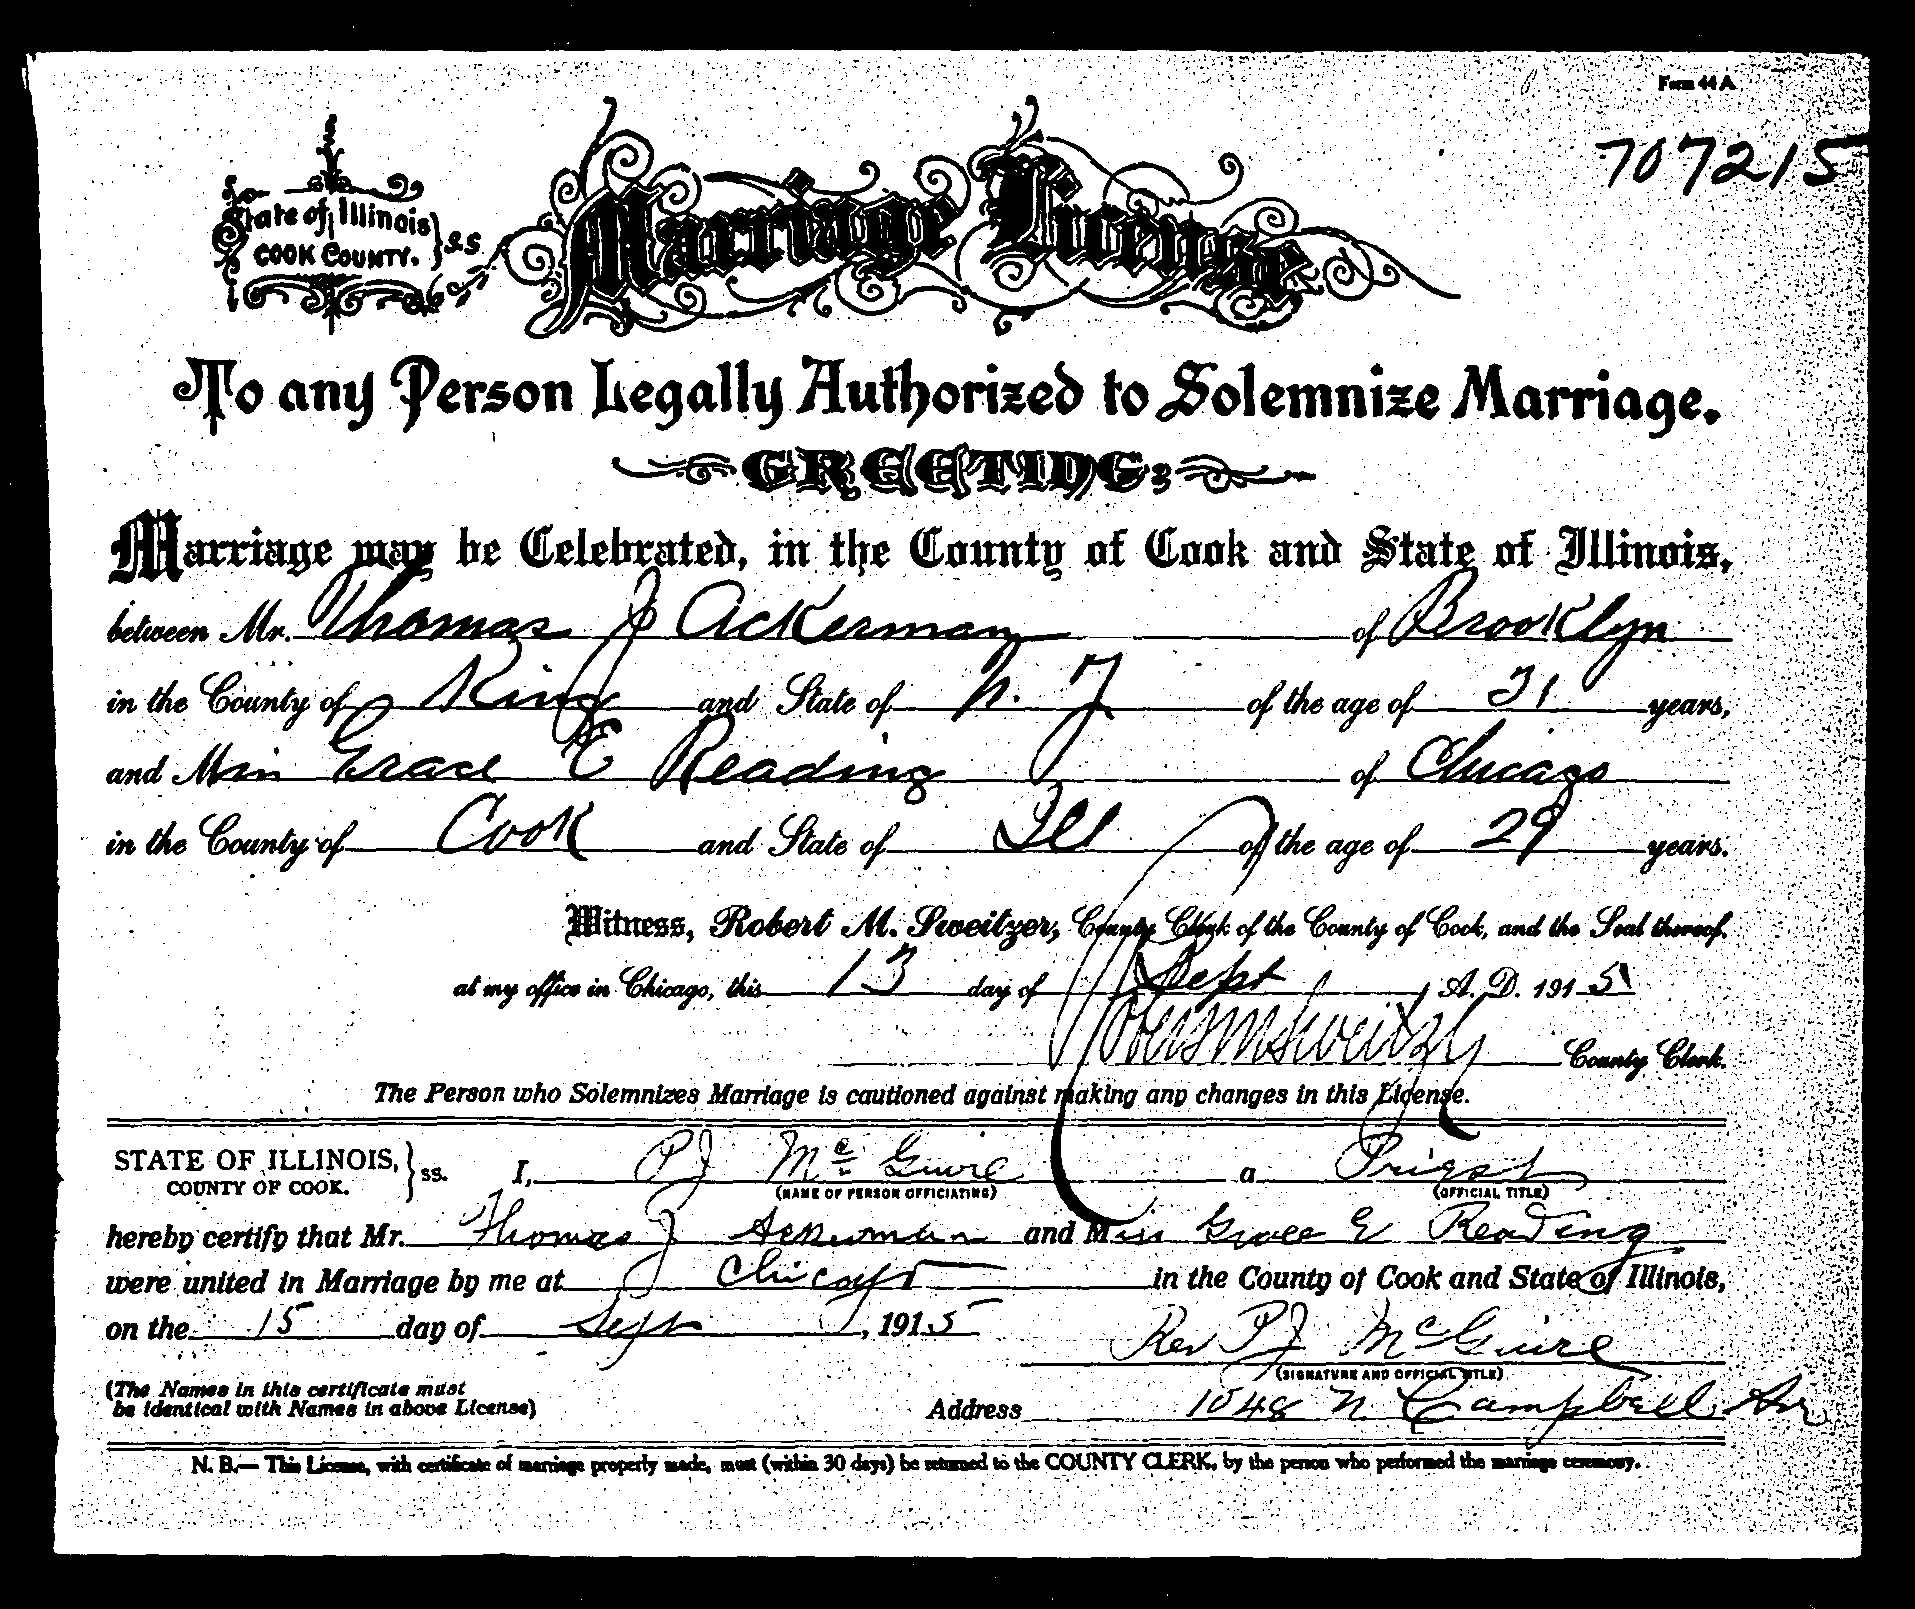 Form 44 A
707215
State of Illinois } S.S
COOK COUNTY.
Marriage License
To any Person Legally Authorized to Solemnize Marriage.
GREETING:
Marriage may be Celebrated, in the County of Cook and State of Illinois,
between Mr. Thomas J Ackerman of Brooklyn
in the County of King and State of N. Y of the age of 31 years,
and Miss Grace E Reading of Chicago
in the County of Cook and State of Ill of the age of 29 years.
Witness, Robert M. Sweitzer, County Clerk of the County of Cook, and the Seal thereof,
at my office in Chicago, this 13 day of Sept A. D. 1915
Robert M Sweitzer County Clerk.
The Person who Solemnizes Marriage is cautioned against making any changes in this License.
STATE OF ILLINOIS, } ss. I, P J McGuire a Priest
COUNTY OF COOK. (NAME OF PERSON OFFICIATING) (OFFICIAL TITLE)
hereby certify that Mr. Thomas J Ackerman and Miss Grace E Reading
were united in Marriage by me at Chicago in the County of Cook and State of Illinois,
on the 15 day of Sept, 1915
Rev P J McGuire
(SIGNATURE AND OFFICIAL TITLE)
(The Names in this certificate must
be identical with Names in above License)
Address 1048 N Campbell Av
N. B.— This License, with certificate of marriage properly made, must (within 30 days) be returned to the COUNTY CLERK, by the person who performed the marriage ceremony.